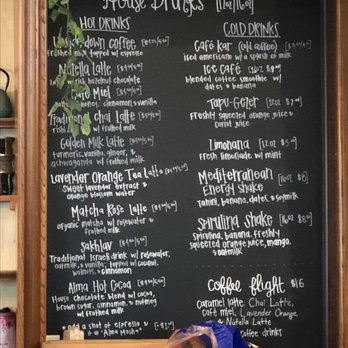 House Drinks [12oz/16oz]
HOT DRINKS
Upside down coffee
frothed milk topped w/ espresso
Nutella Latte
rich hazelnut chocolate
Café Miel
cinnamon & vanilla
Traditional chai Latte
w/ frothed milk
Golden Milk Latte
turmeric, vanilla, ginger, &
ashwagandha w/ frothed milk
Lavender Orange Tea Latte
sweet lavender extract &
orange blossom water
Matcha Rose Latte
organic matcha w/ rosewater &
frothed milk
Sakhlav
Traditional Israeli drink w/ rosewater,
oatmilk, & vanilla; topped w/ coconut,
walnuts, & cinnamon
Alma Hot Cocoa
House chocolate blend w/ cocoa,
brown sugar, cinnamon, & nutmeg
w/ frothed milk
add a shot of espresso
it's a "Alma Mocha"
COLD DRINKS
Café Kar (cold coffee)
iced americano w/ a splash of milk
Ice Café [16oz $8]
blended coffee smoothie w/
dates & banana
Tapu-Gezer [16oz $7]
Freshly squeezed orange juice &
carrot juice
Limonana [16oz $6]
Fresh lemonade w/ mint
Mediterranean [16oz $8]
Energy Shake
tahini, banana, dates, & oatmilk
Spirulina Shake [16oz $8]
Spirulina, banana, freshly
squeezed orange juice, mango,
& oatmilk
Coffee flight $16
caramel latte, Chai Latte,
café Miel, Lavender Orange,
& Nutella Latte
coffee drinks